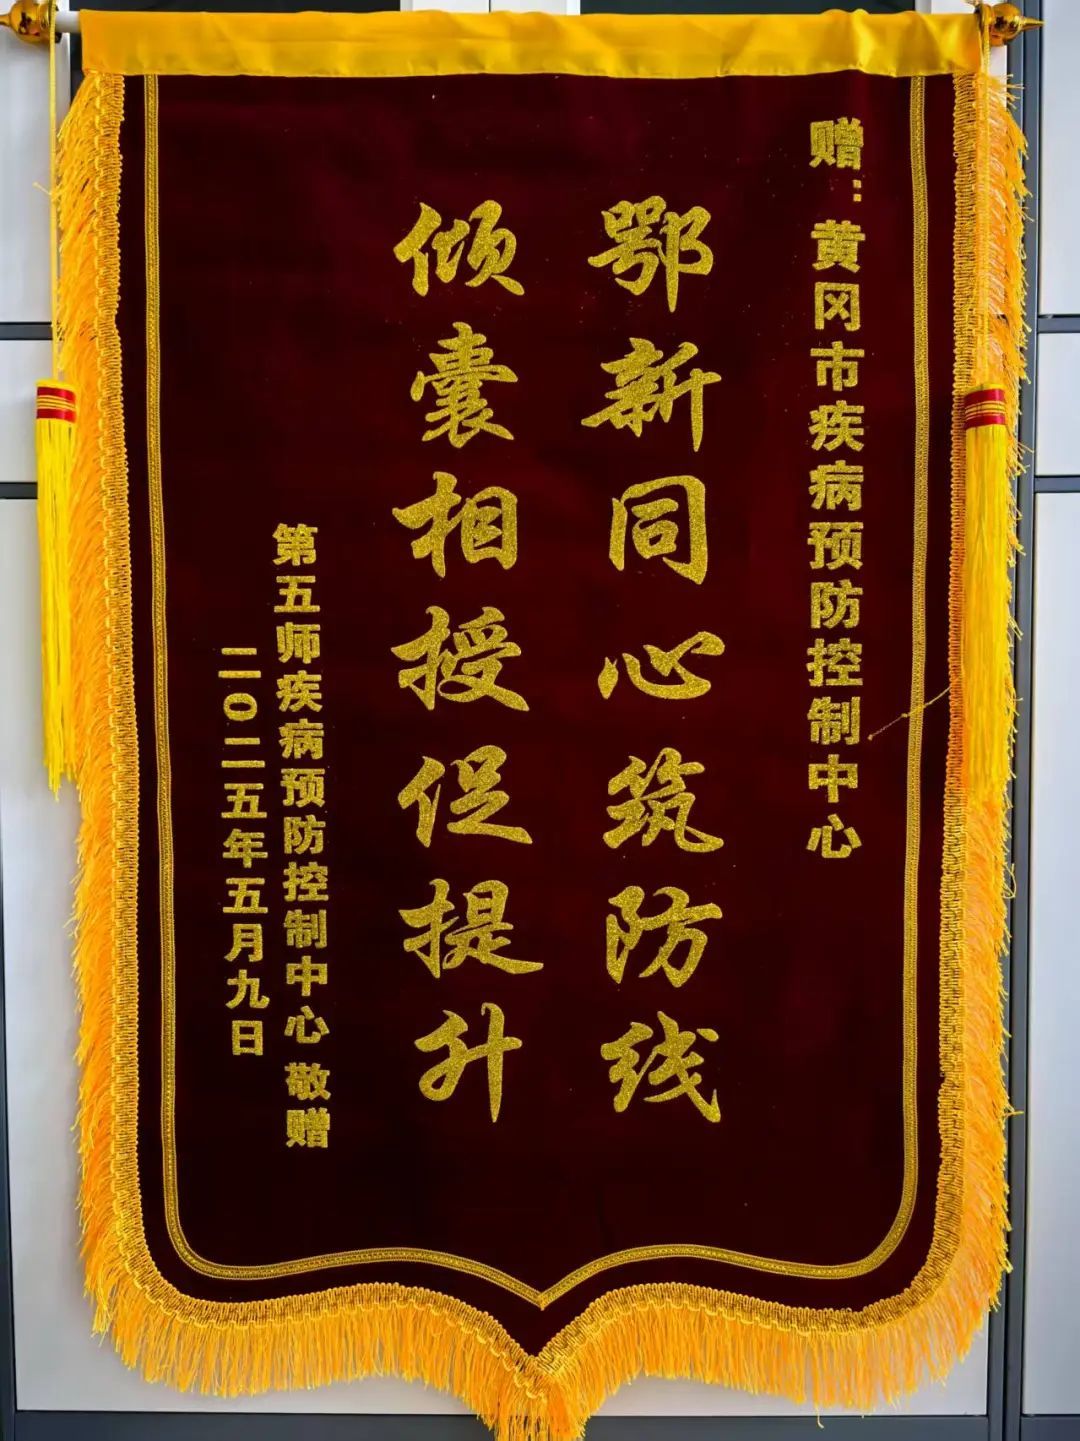 赠：黄冈市疾病预防控制中心
鄂新同心筑防线
倾囊相授促提升
第五师疾病预防控制中心 敬赠
二〇二五年五月九日